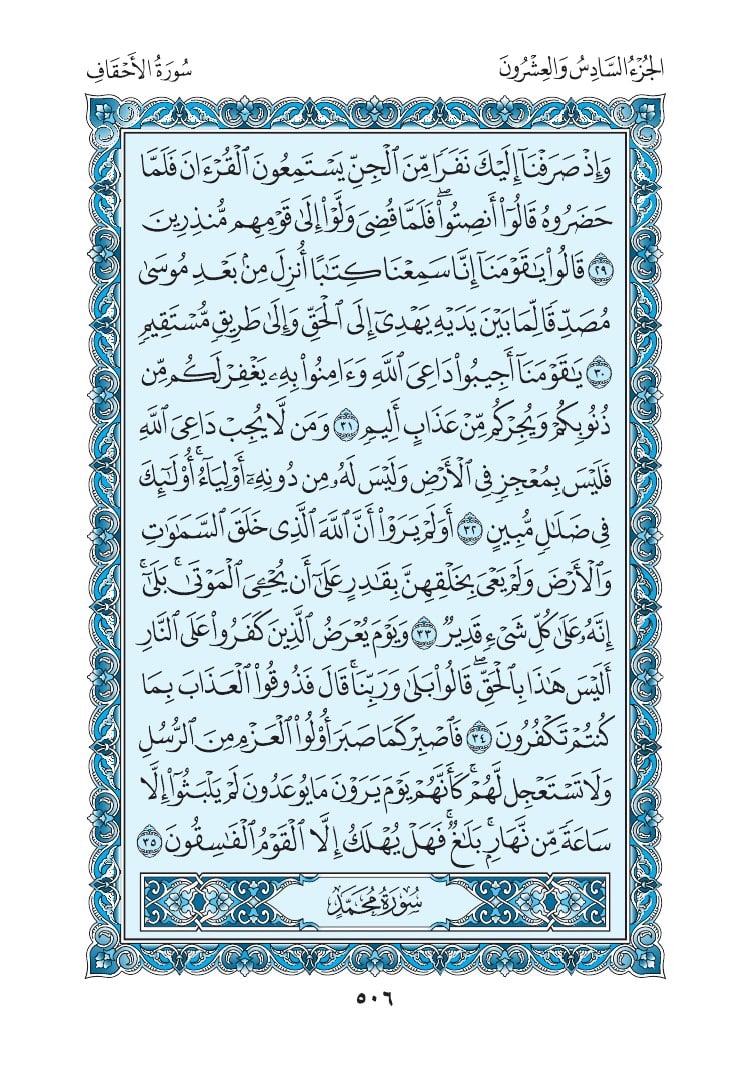 الجُزْءُ السَّادِسُ وَالعِشْرُونَ
سُورَةُ الأَحْقَافِ
وَإِذْ صَرَفْنَآ إِلَيْكَ نَفَرًا مِّنَ ٱلْجِنِّ يَسْتَمِعُونَ ٱلْقُرْءَانَ فَلَمَّا
حَضَرُوهُ قَالُوٓا۟ أَنصِتُوا۟ۖ فَلَمَّا قُضِىَ وَلَّوْا۟ إِلَىٰ قَوْمِهِم مُّنذِرِينَ
٢٩ قَالُوا۟ يَٰقَوْمَنَآ إِنَّا سَمِعْنَا كِتَٰبًا أُنزِلَ مِنۢ بَعْدِ مُوسَىٰ
مُصَدِّقًا لِّمَا بَيْنَ يَدَيْهِ يَهْدِىٓ إِلَى ٱلْحَقِّ وَإِلَىٰ طَرِيقٍ مُّسْتَقِيمٍ
٣٠ يَٰقَوْمَنَآ أَجِيبُوا۟ دَاعِىَ ٱللَّهِ وَءَامِنُوا۟ بِهِۦ يَغْفِرْ لَكُم مِّن
ذُنُوبِكُمْ وَيُجِرْكُم مِّنْ عَذَابٍ أَلِيمٍ ٣١ وَمَن لَّا يُجِبْ دَاعِىَ ٱللَّهِ
فَلَيْسَ بِمُعْجِزٍ فِى ٱلْأَرْضِ وَلَيْسَ لَهُۥ مِن دُونِهِۦٓ أَوْلِيَآءُۚ أُو۟لَٰٓئِكَ
فِى ضَلَٰلٍ مُّبِينٍ ٣٢ أَوَلَمْ يَرَوْا۟ أَنَّ ٱللَّهَ ٱلَّذِى خَلَقَ ٱلسَّمَٰوَٰتِ
وَٱلْأَرْضَ وَلَمْ يَعْىَ بِخَلْقِهِنَّ بِقَٰدِرٍ عَلَىٰٓ أَن يُحْۦِىَ ٱلْمَوْتَىٰۚ بَلَىٰٓ
إِنَّهُۥ عَلَىٰ كُلِّ شَىْءٍ قَدِيرٌ ٣٣ وَيَوْمَ يُعْرَضُ ٱلَّذِينَ كَفَرُوا۟ عَلَى ٱلنَّارِ
أَلَيْسَ هَٰذَا بِٱلْحَقِّۖ قَالُوا۟ بَلَىٰ وَرَبِّنَاۚ قَالَ فَذُوقُوا۟ ٱلْعَذَابَ بِمَا
كُنتُمْ تَكْفُرُونَ ٣٤ فَٱصْبِرْ كَمَا صَبَرَ أُو۟لُوا۟ ٱلْعَزْمِ مِنَ ٱلرُّسُلِ
وَلَا تَسْتَعْجِل لَّهُمْۚ كَأَنَّهُمْ يَوْمَ يَرَوْنَ مَا يُوعَدُونَ لَمْ يَلْبَثُوٓا۟ إِلَّا
سَاعَةً مِّن نَّهَارٍۭۚ بَلَٰغٌۚ فَهَلْ يُهْلَكُ إِلَّا ٱلْقَوْمُ ٱلْفَٰسِقُونَ ٣٥
سُورَةُ مُحَمَّدٍ
٥٠٦